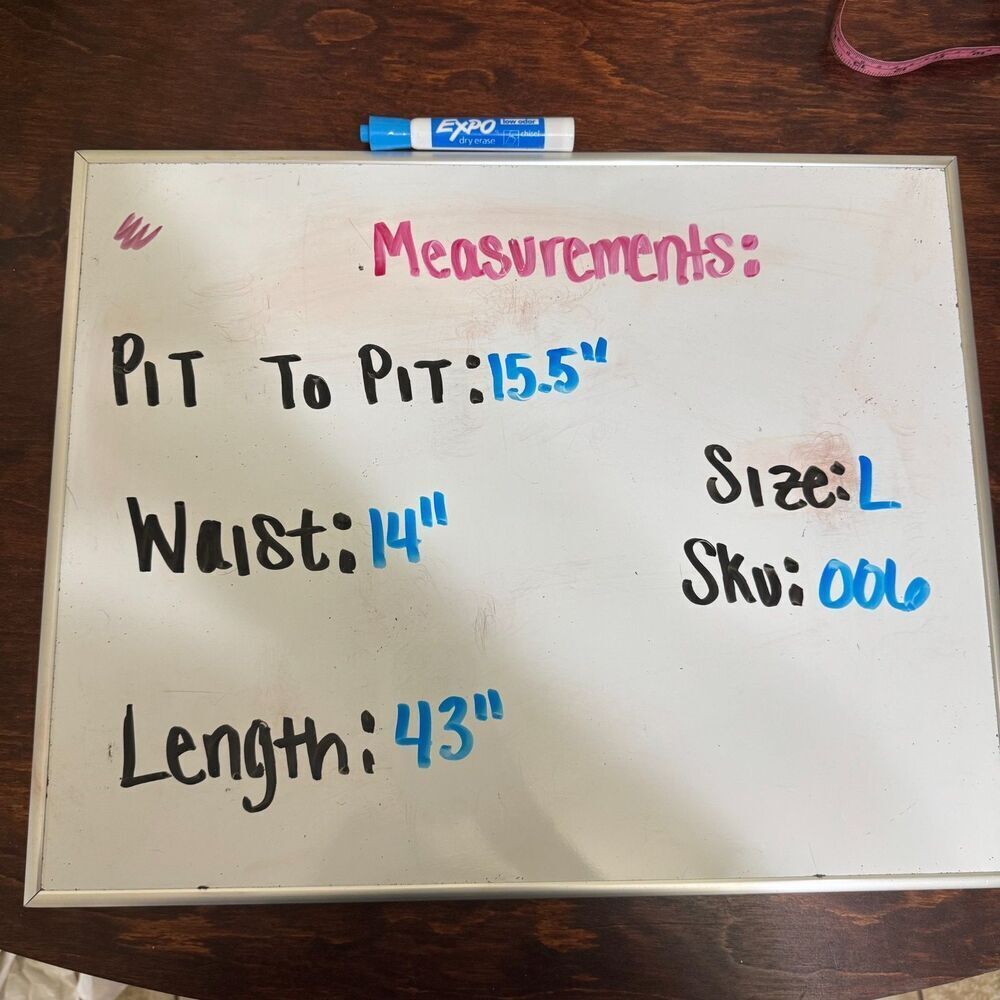 EXPO low odor
dry erase chisel
Measurements:
PIT TO PIT: 15.5"
Waist: 14"
Size: L
Sku: 006
Length: 43"